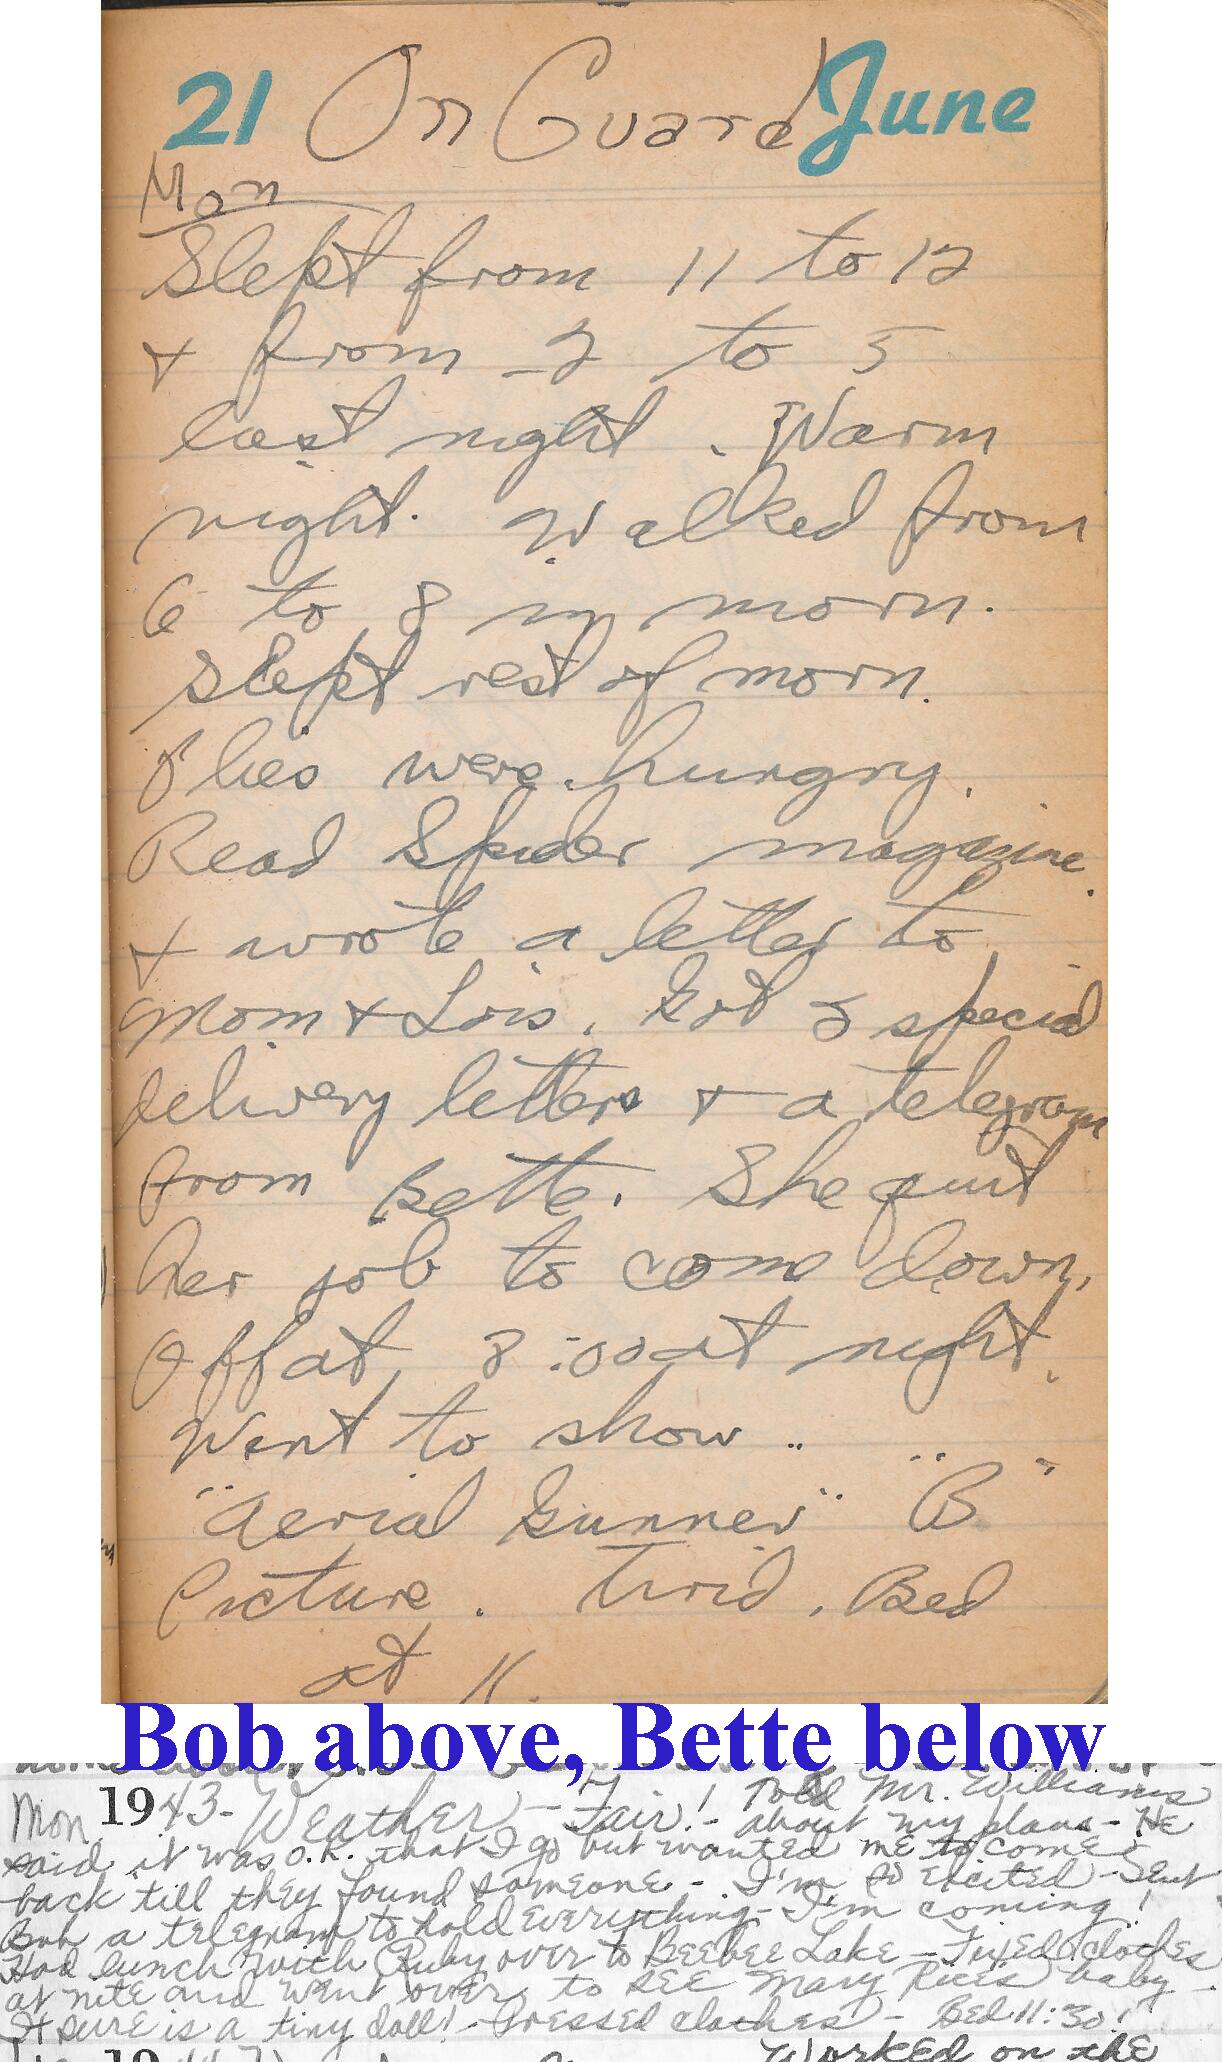 21 On Guard June
Mon
Slept from 11 to 12
+ from 2 to 5
last night. Warm
night. Walked from
6 to 8 in morn.
Slept rest of morn.
Flies were hungry.
Read Spider magazine
+ wrote a letter to
Mom + Lois. Got 3 special
delivery letters + a telegram
from Bette. She quit
her job to come down.
Off at 8:00 at night.
Went to show..
"Aerial Gunner" "B"
Picture. Tired. Bed
at 11.
Bob above, Bette below
Mon 1943 - Weather - Fair! Told Mr. Williams
about my plans - He
said it was O.K. that I go but wanted me to come
back till they found someone - I'm so excited - Sent
Bob a telegram to hold everything - I'm coming!
Had lunch with Ruby over to Beebee Lake - Fixed clothes
at nite and went over to see Mary Rice's baby -
It sure is a tiny doll! - Pressed clothes - Bed 11:30!
19
Worked on the